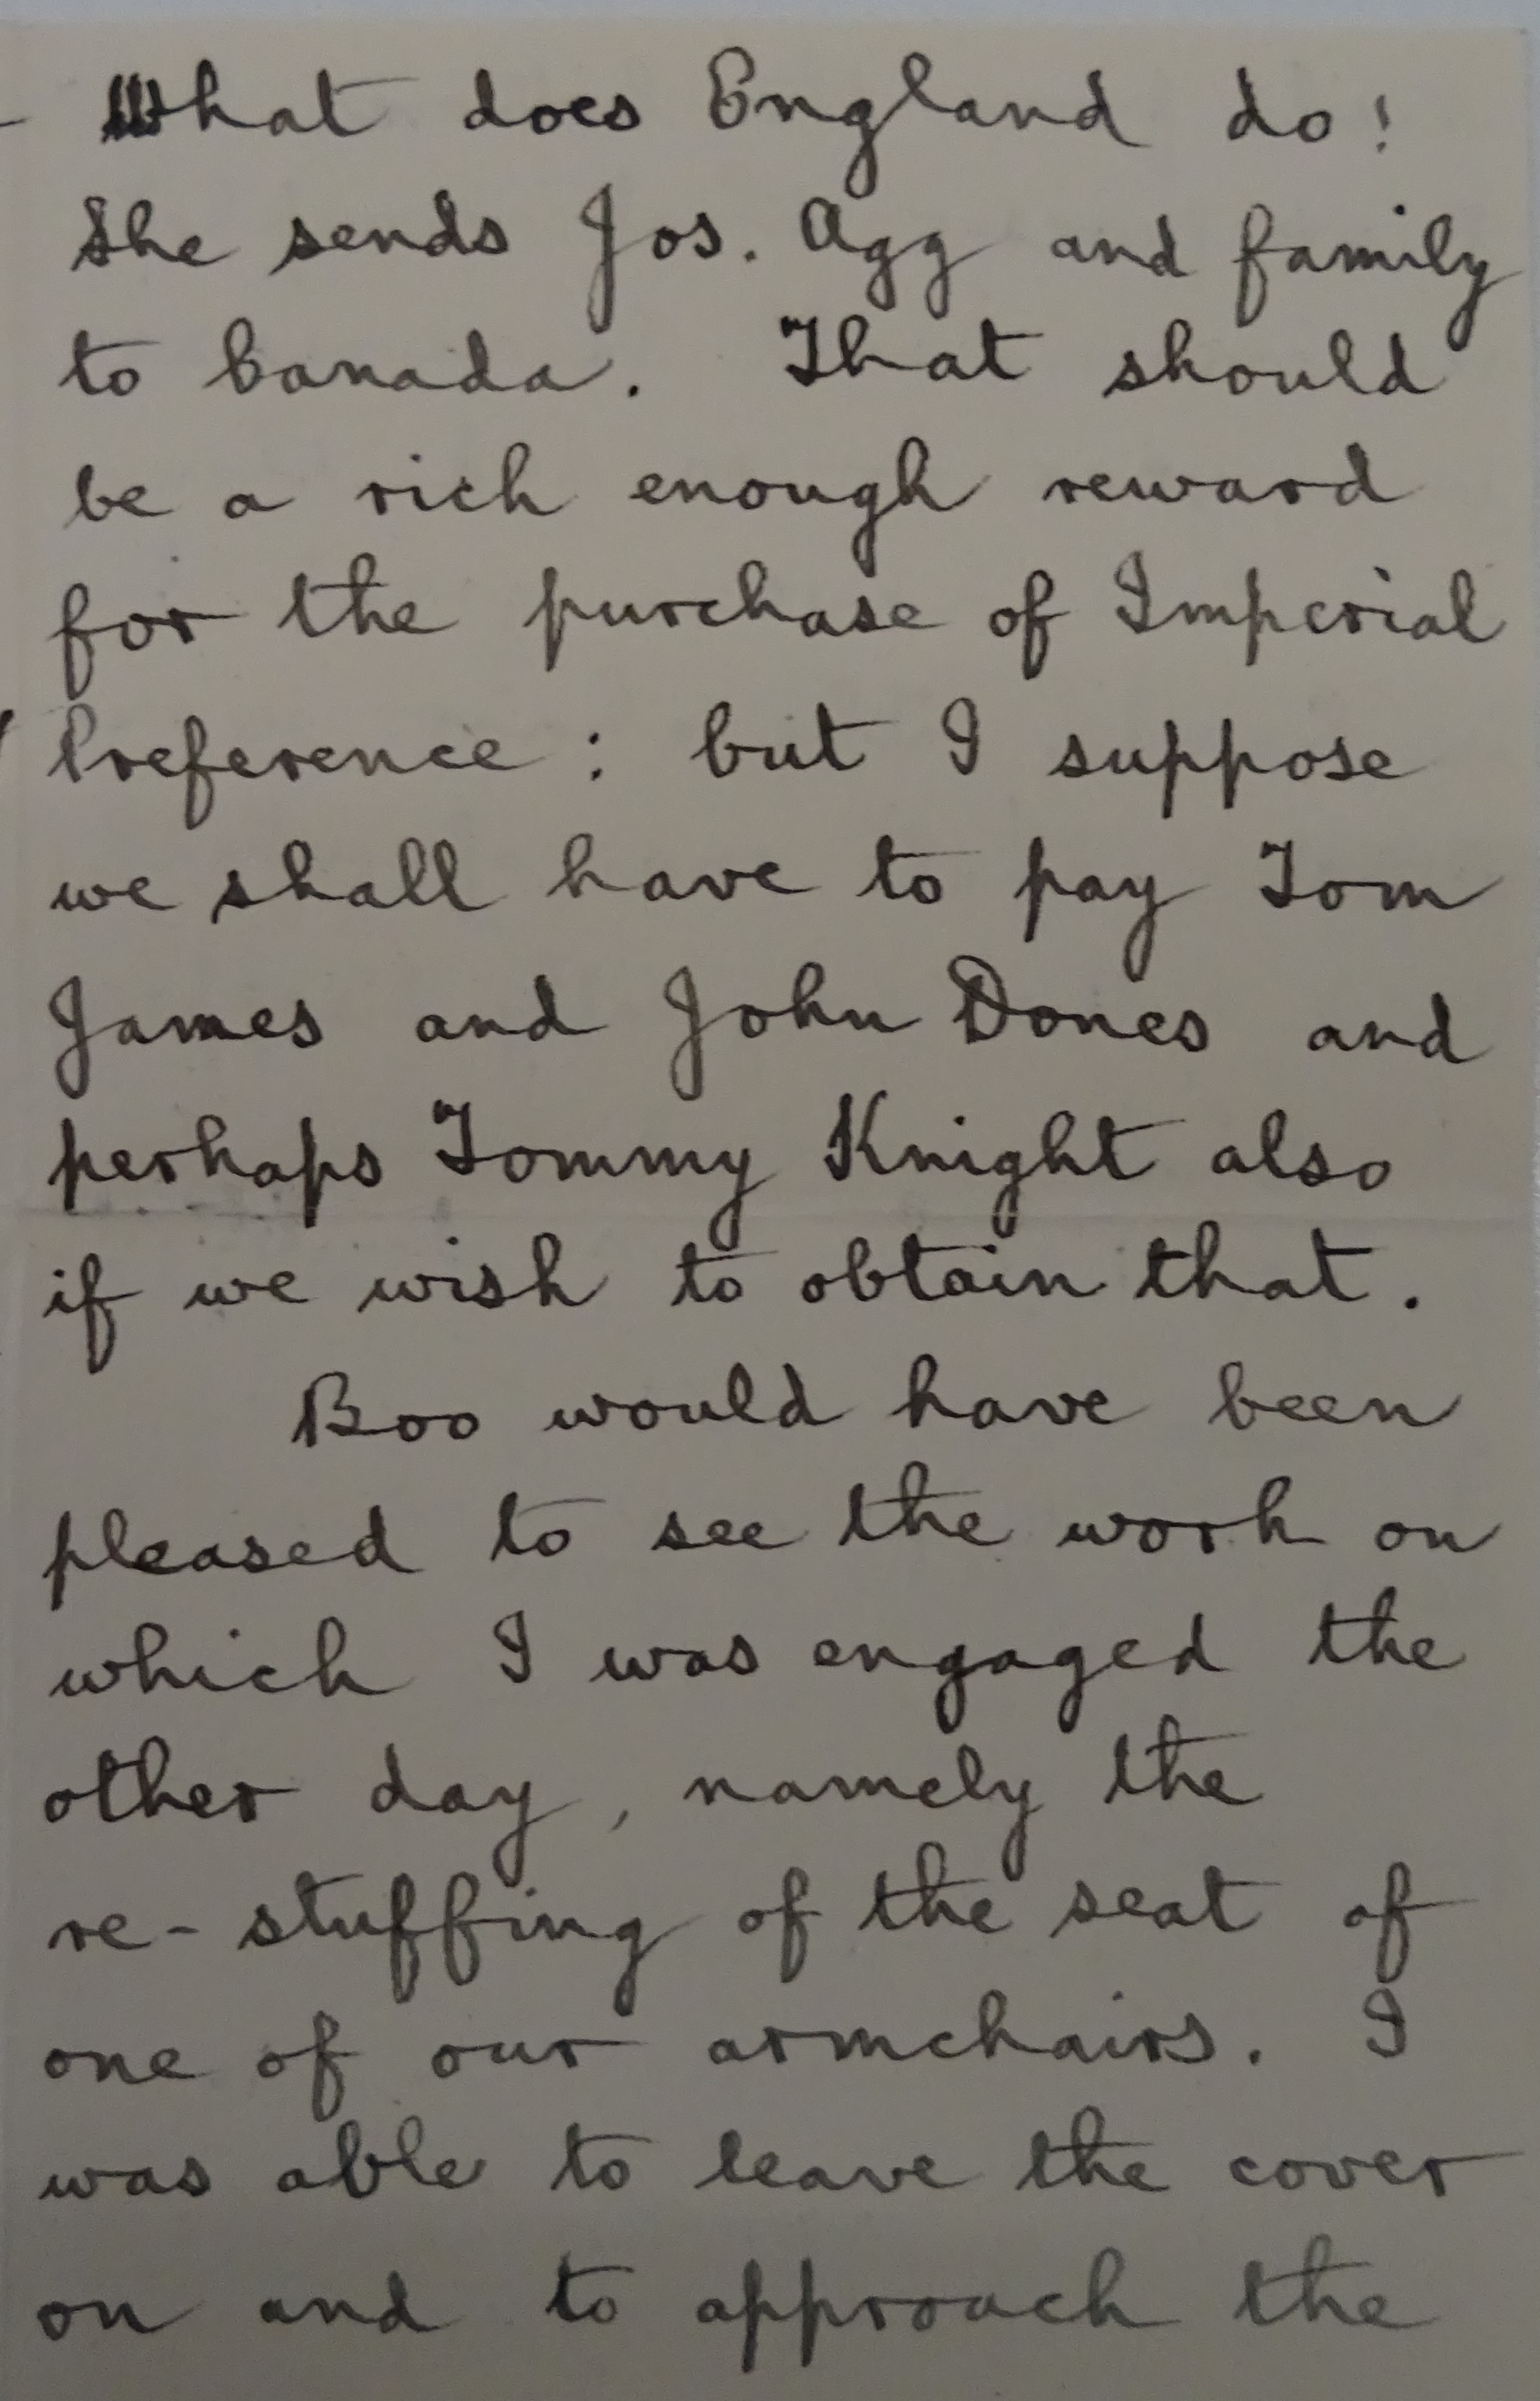 What does England do!
She sends Jos. Agg and family
to Canada. That should
be a rich enough reward
for the purchase of Imperial
Preference : but I suppose
we shall have to pay Tom
James and John Dones and
perhaps Tommy Knight also
if we wish to obtain that.
Boo would have been
pleased to see the work on
which I was engaged the
other day, namely the
re-stuffing of the seat of
one of our armchairs. I
was able to leave the cover
on and to approach the